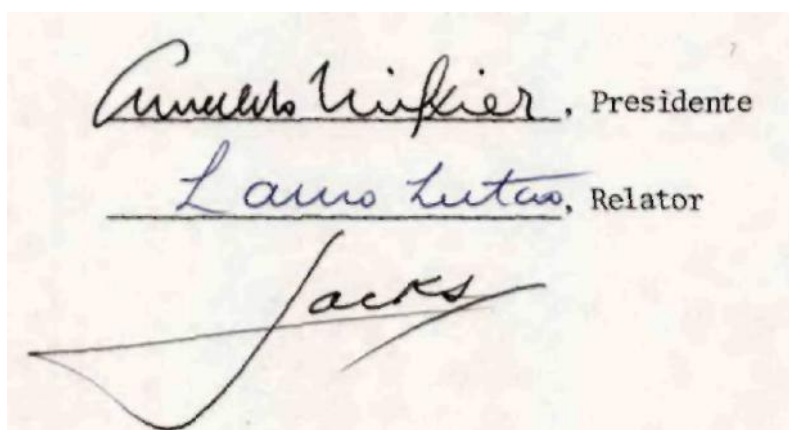 Arnaldo Niskier, Presidente
Lauro Leitão, Relator
Jacks